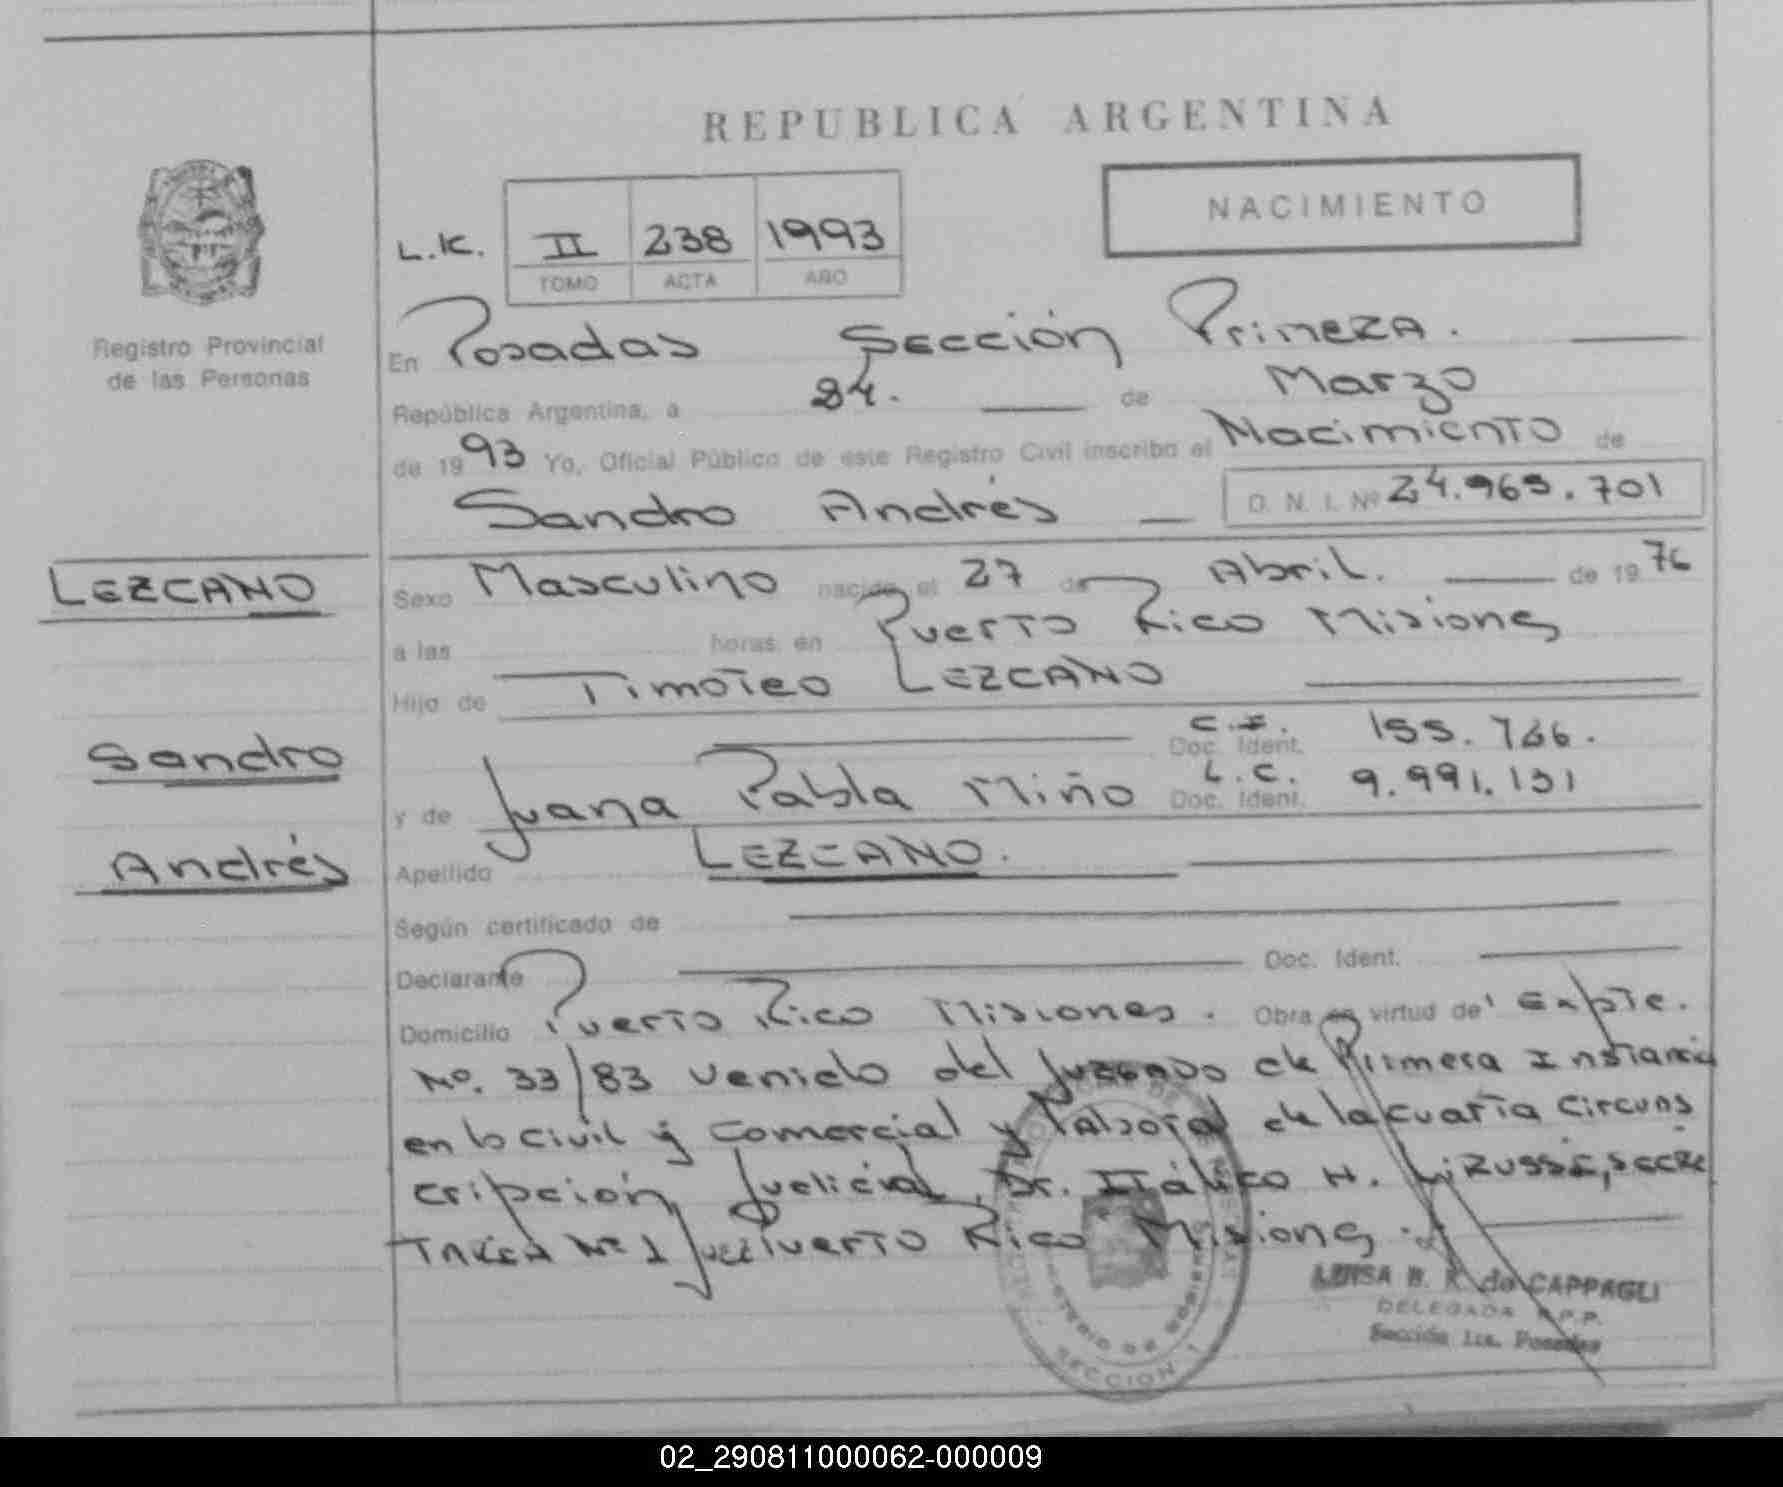 REPUBLICA ARGENTINA
NACIMIENTO
L.K. II 238 1993
TOMO ACTA AÑO
Registro Provincial
de las Personas
En Posadas Sección Primera.
República Argentina, a 24. de Marzo
de 1993 Yo, Oficial Público de este Registro Civil inscribo el Nacimiento de
Sandro Andrés D. N. I. Nº 24.965.701
LEZCANO
Sexo Masculino nacido el 27 de Abril. de 1976
a las horas en Puerto Rico Misiones
Hijo de Timoteo LEZCANO
Doc. Ident. 155.766.
Sandro
y de Juana Pabla Miño L.C. Doc. Ident. 9.991.131
Andrés
Apellido LEZCANO.
Según certificado de
Declarante Doc. Ident.
Domicilio Puerto Rico Misiones. Obra en virtud de Expte.
Nº. 33/83 venido del Juzgado de Primera Instancia
en lo civil y comercial y laboral de la cuarta circuns
cripción Judicial, Dr. Itálico H. secre
Nº 1 Puerto Rico Misiones.
LUISA B. R. de CAPPAGLI
DELEGADA R.P.P.
Sección 1ra. Posadas
MINISTERIO DE GOBIERNO
SECCION 1
02_290811000062-000009